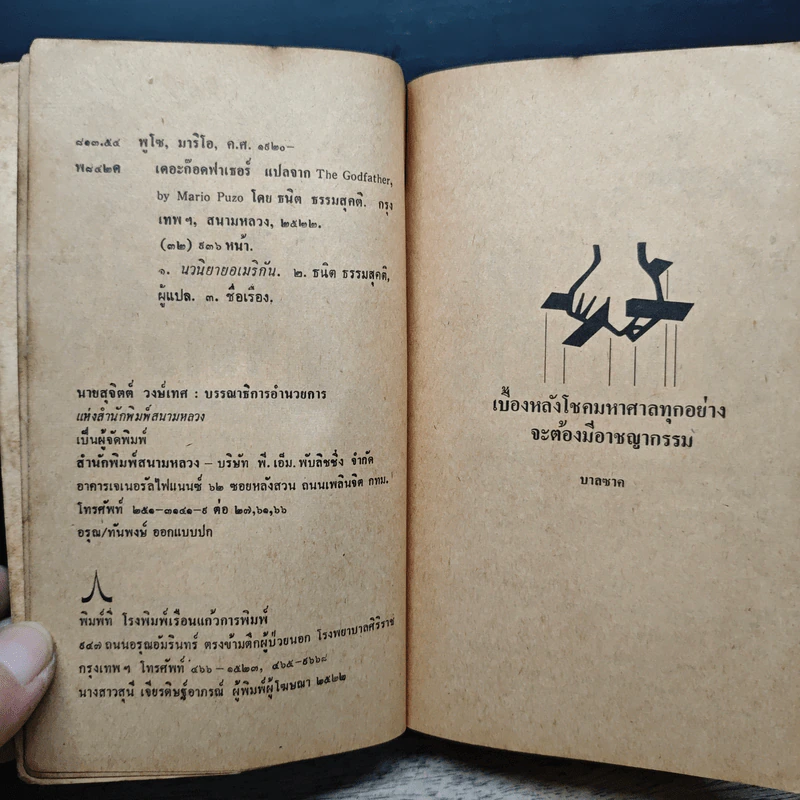 ๘๑๓.๕๔ พูโซ, มาริโอ, ค.ศ. ๑๙๒๐–
พ๘๔๒ด เดอะก๊อดฟาเธอร์ แปลจาก The Godfather,
by Mario Puzo โดย ธนิต ธรรมสุคติ. กรุง
เทพฯ, สนามหลวง, ๒๕๒๒.
(๓๒) ๙๓๖ หน้า.
๑. นวนิยายอเมริกัน. ๒. ธนิต ธรรมสุคติ,
ผู้แปล. ๓. ชื่อเรื่อง.
นายสุจิตต์ วงษ์เทศ : บรรณาธิการอำนวยการ
แห่งสำนักพิมพ์สนามหลวง
เป็นผู้จัดพิมพ์
สำนักพิมพ์สนามหลวง – บริษัท พี.เอ็ม.พับลิชชิ่ง จำกัด
อาคารเจเนอรัลไฟแนนซ์ ๖๒ ซอยหลังสวน ถนนเพลินจิต กทม.
โทรศัพท์ ๒๕๑–๓๑๔๑–๙ ต่อ ๒๗,๖๑,๖๖
อรุณ/ทันพงษ์ ออกแบบปก
พิมพ์ที่ โรงพิมพ์เรือนแก้วการพิมพ์
๙๔๗ ถนนอรุณอัมรินทร์ ตรงข้ามตึกผู้ป่วยนอก โรงพยาบาลศิริราช
กรุงเทพฯ โทรศัพท์ ๔๖๖–๑๕๒๓, ๔๖๕–๙๖๖๘
นางสาวสุนี เจียรดิษฐ์อาภรณ์ ผู้พิมพ์ผู้โฆษณา ๒๕๒๒
เบื้องหลังโชคมหาศาลทุกอย่าง
จะต้องมีอาชญากรรม
บาลซาค